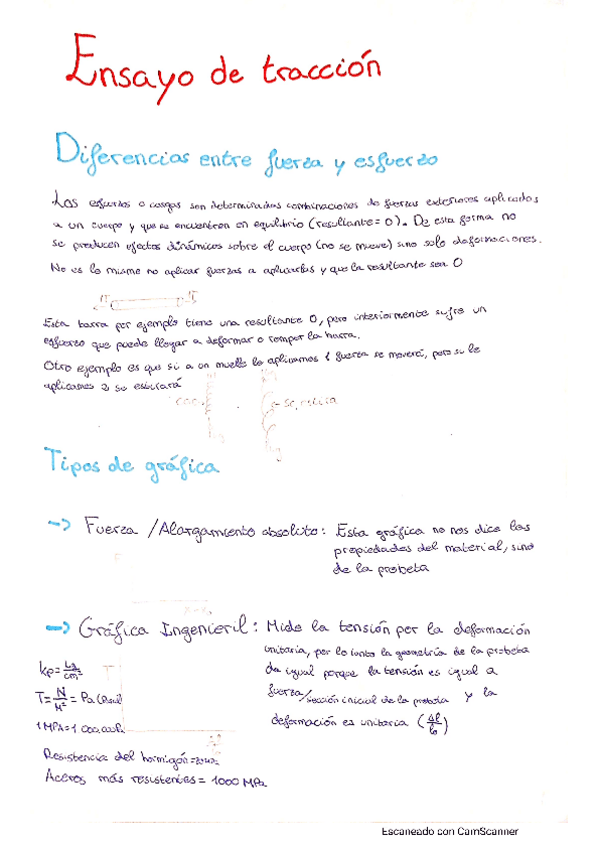 Ensayo de tracción
Diferencias entre fuerza y esfuerzo
Los esfuerzos o cargas son determinadas combinaciones de fuerzas exteriores aplicadas
a un cuerpo y que se encuentran en equilibrio (resultante = 0). De esta forma no
se producen efectos dinámicos sobre el cuerpo (no se mueve) sino solo deformaciones.
No es lo mismo no aplicar fuerzas a aplicarlas y que la resultante sea 0
Esta barra por ejemplo tiene una resultante 0, pero interiormente sufre un
esfuerzo que puede llegar a deformar o romper la barra.
Otro ejemplo es que si a un muelle le aplicamos 1 fuerza se moverá, pero si le
aplicamos 2 se estirará
cae
se estira
Tipos de gráfica
-> Fuerza / Alargamiento absoluto: Esta gráfica no nos dice las
propiedades del material, sino
de la probeta
-> Gráfica Ingenieril: Mide la tensión por la deformación
unitaria, por lo tanto la geometría de la probeta
da igual porque la tensión es igual a
fuerza/sección inicial de la probeta y la
deformación es unitaria (Δl/l₀)
T = N/M² = Pa
1 MPA = 1 000.000 Pa
Resistencia del hormigón =
Aceros más resistentes = 1000 MPa
Escaneado con CamScanner